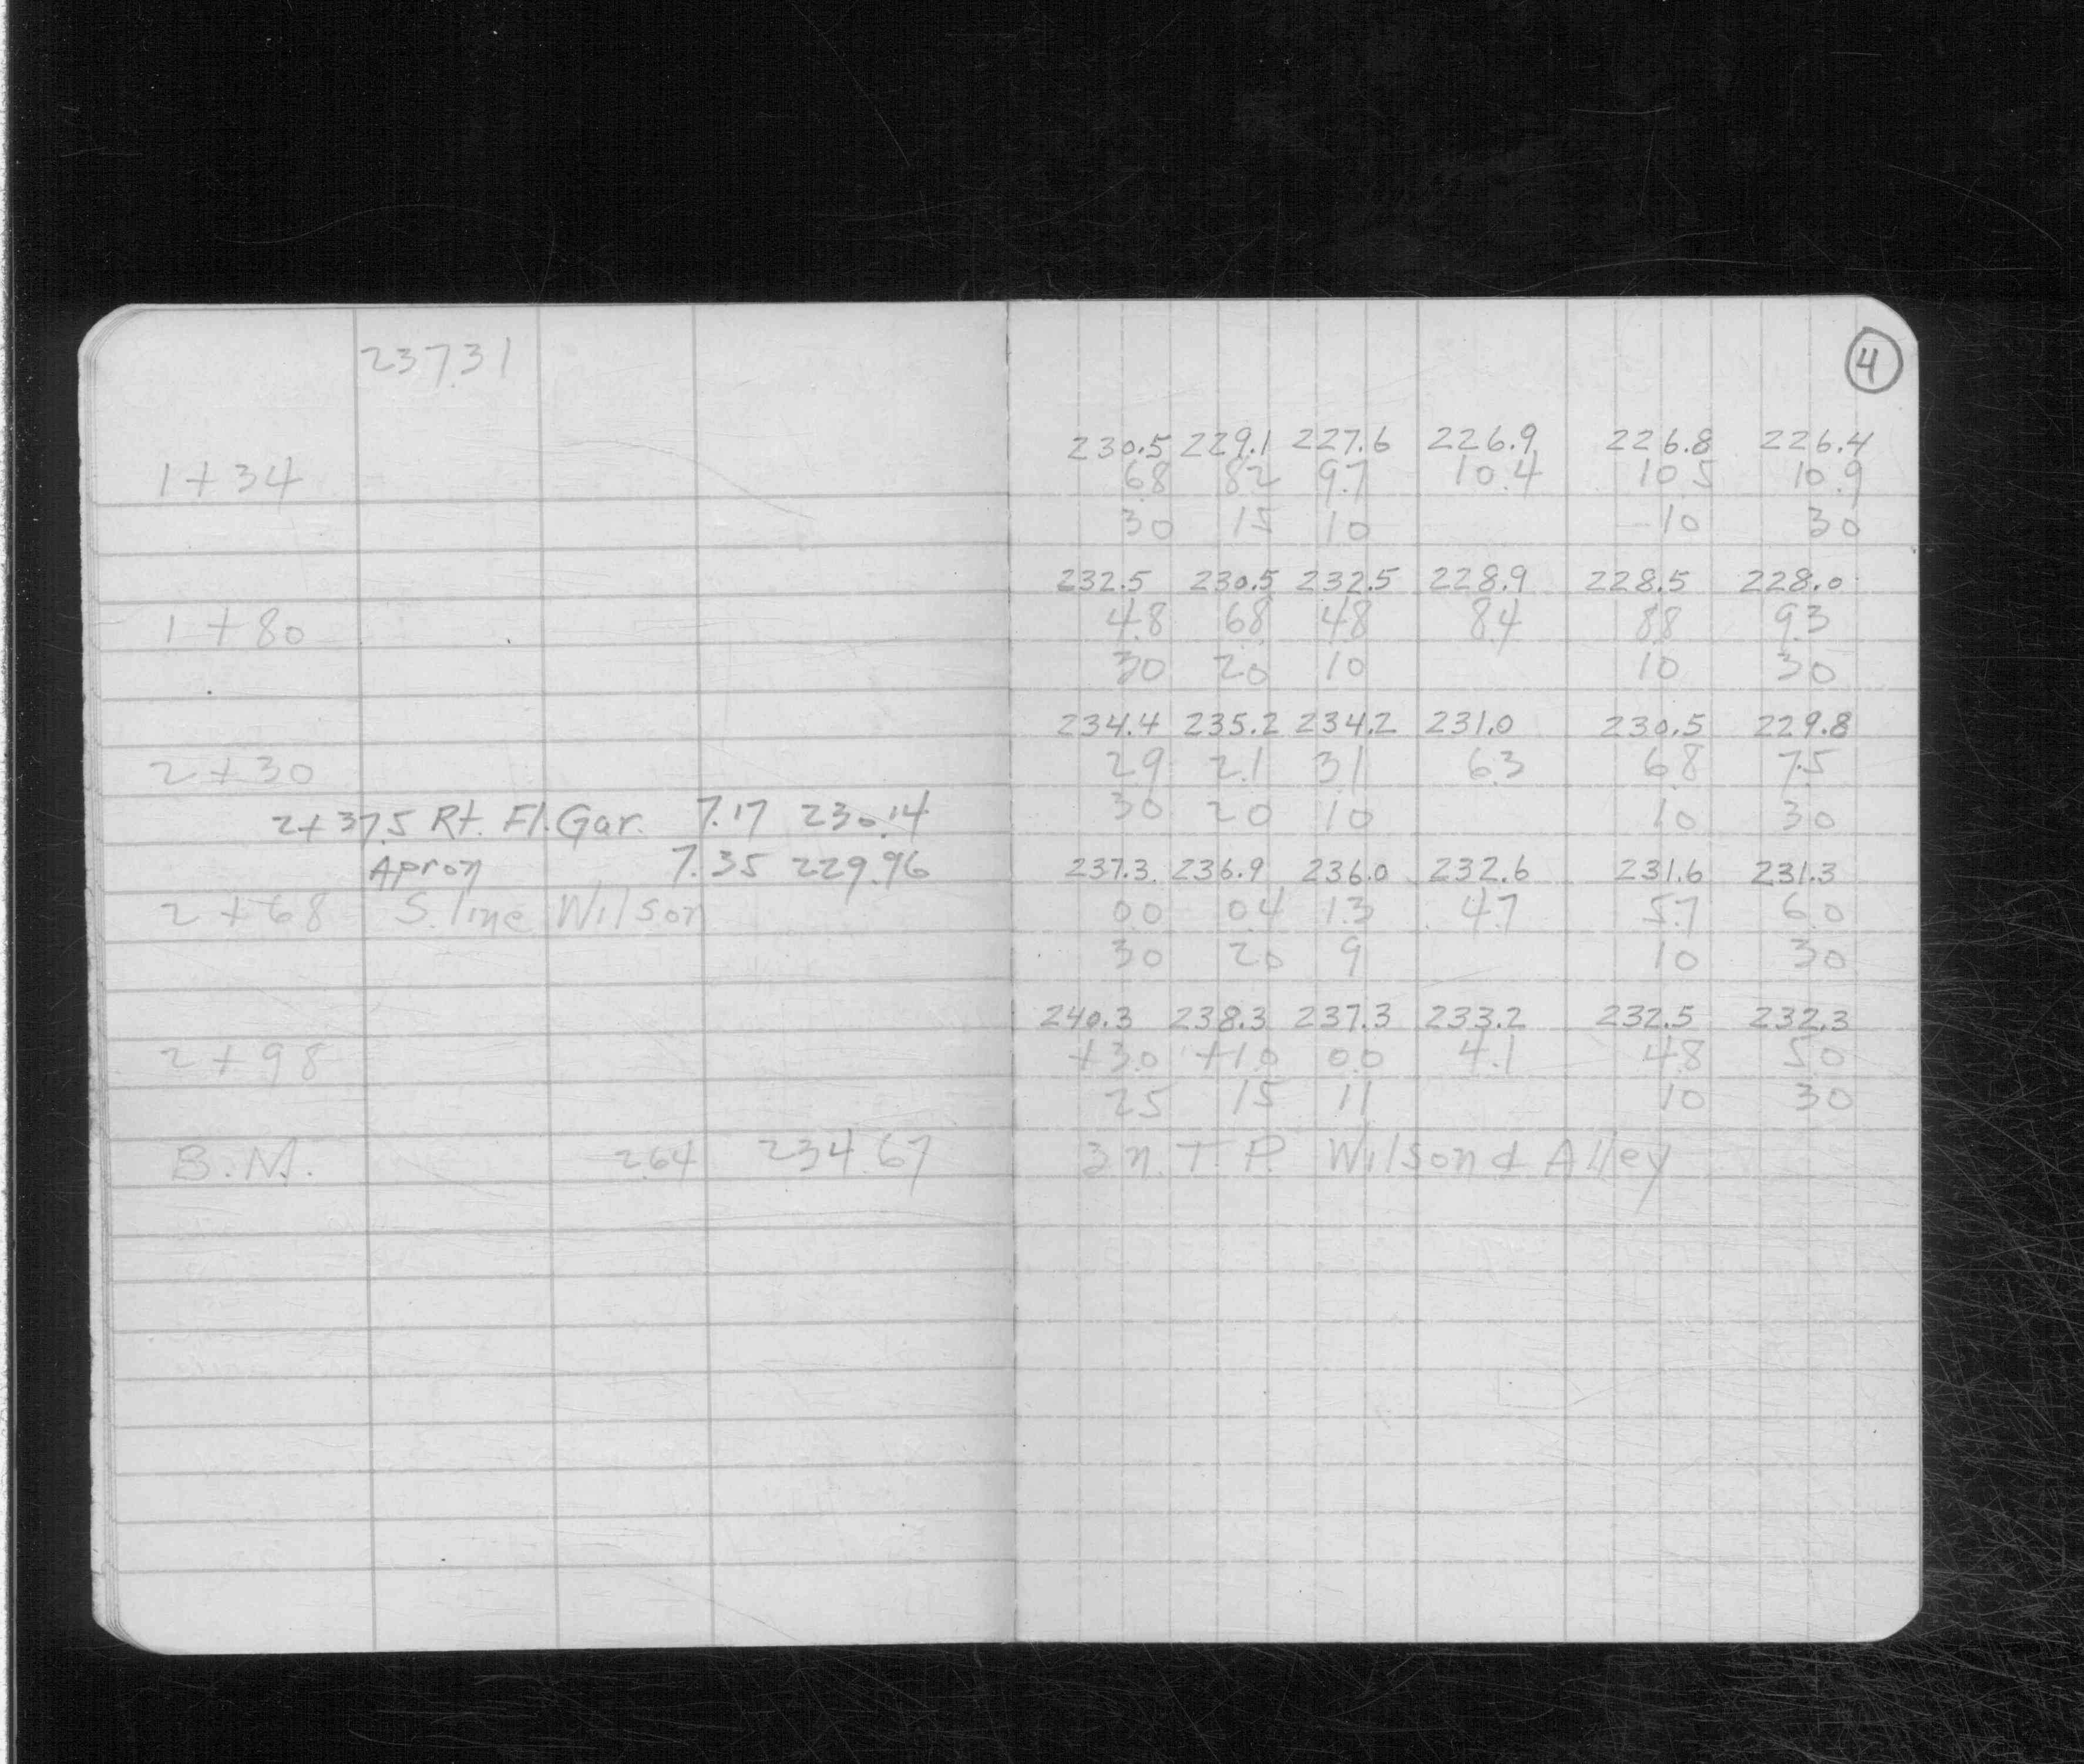 237.31
4
230.5 229.1 227.6 226.9 226.8 226.4
1+34 6.8 8.2 9.7 10.4 10.5 10.9
30 15 10 10 30
232.5 230.5 232.5 228.9 228.5 228.0
1+80 4.8 6.8 4.8 8.4 8.8 9.3
30 20 10 10 30
234.4 235.2 234.2 231.0 230.5 229.8
2+30 2.9 2.1 3.1 6.3 6.8 7.5
2+37.5 Rt. Fl. Gar. 7.17 230.14 30 20 10 10 30
Apron 7.35 229.96 237.3 236.9 236.0 232.6 231.6 231.3
2+68 S. line Wilson 0.0 0.4 1.3 4.7 5.7 6.0
30 20 9 10 30
240.3 238.3 237.3 233.2 232.5 232.3
2+98 +3.0 +1.0 0.0 4.1 4.8 5.0
25 15 11 10 30
B.M. 2.64 234.67 T.P. Wilson & Alley